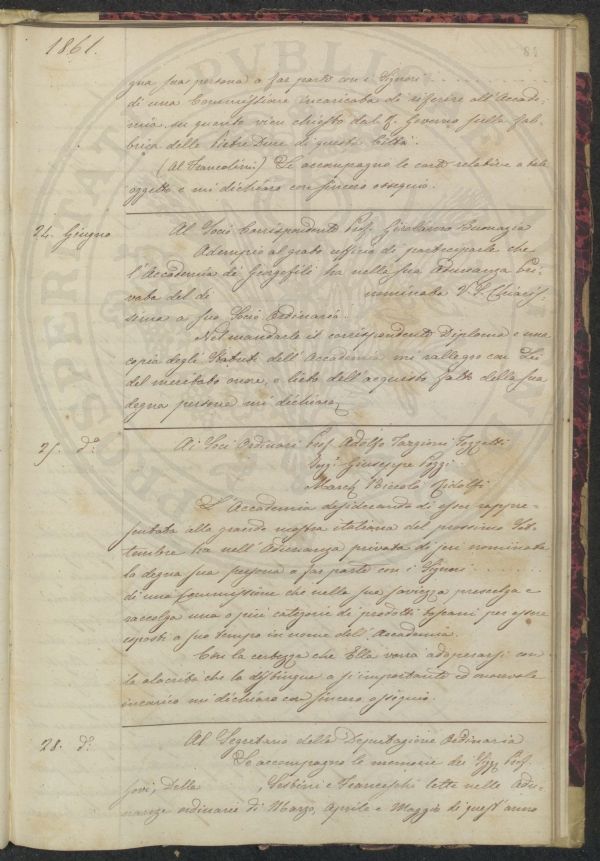 1861.
81
gna sua persona a far parte con i Signori
di una Commissione incaricata di riferire all'Accade-
mia su quanto vien chiesto dal R. Governo sulla Fab-
brica delle Pietre Dure di questa Città.
(Al Francolini) Le accompagno le carte relative a tale
oggetto e mi dichiaro con sincero ossequio.
24. Giugno
Al Socio Corrispondente Prof. Girolamo Buonazia
Adempio al grato ufficio di parteciparle che
l'Accademia de' Georgofili ha nella sua Adunanza Pri-
vata del dì nominato V. S. Chiaris-
sima a suo Socio Ordinario.
Nel mandarle il corrispondente Diploma e una
copia degli Statuti dell'Accademia mi rallegro con Lei
del meritato onore, e lieto dell'acquisto fatto della sua
degna persona mi dichiaro
25. d°.
Ai Soci Ordinari Prof. Adolfo Targioni Tozzetti
Ing. Giuseppe Pozzi
March. Niccolò Ridolfi
L'Accademia desiderando di esser rappre-
sentata alla grande mostra italiana del prossimo Set-
tembre ha nell'Adunanza privata di jeri nominata
la degna sua persona a far parte con i Signori
di una Commissione che nella sua saviezza prescelga e
raccolga una o più categorie di prodotti toscani per essere
esposti a suo tempo in nome dell'Accademia.
Con la certezza che Ella vorrà adoperarsi con
la alacrità che la distingue a sì importante ed onorevole
incarico mi dichiaro con sincero ossequio.
28. d°.
Al Segretario della Deputazione Ordinaria
Le accompagno le memorie dei Prof.
Della e Franceschi lette nelle Adu-
nanze ordinarie di Marzo, Aprile e Maggio di quest'anno
PROSPERITATI PUBLICAE